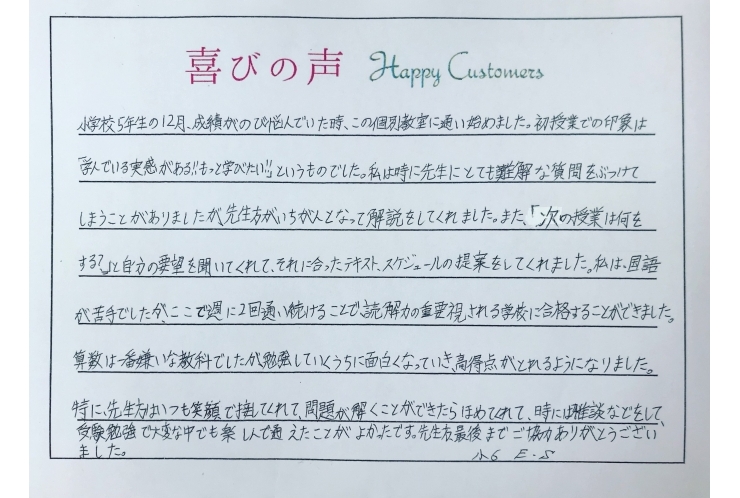 喜びの声 Happy Customers
小学校5年生の12月、成績がのび悩んでいた時、この個別教室に通い始めました。初授業での印象は
「学んでいる実感がある!!もっと学びたい!!」というものでした。私は時に先生にとても難解な質問をぶつけて
しまうことがありましたが、先生方がいちが人となって解説をしてくれました。また、「次の授業は何を
する?」と自分の要望を聞いてくれて、それに合ったテキスト、スケジュールの提案をしてくれました。私は、国語
が苦手でしたが、ここで週に2回通い続けることで、読解力の重要視される学校に合格することができました。
算数は一番嫌いな教科でしたが勉強していくうちに面白くなっていき、高得点がとれるようになりました。
特に、先生方はいつも笑顔で接してくれて、問題が解くことができたらほめてくれて、時には雑談などをして、
受験勉強で大変な中でも楽しんで通えたことがよかったです。先生方最後までご協力ありがとうござい
ました。
小6 E.S